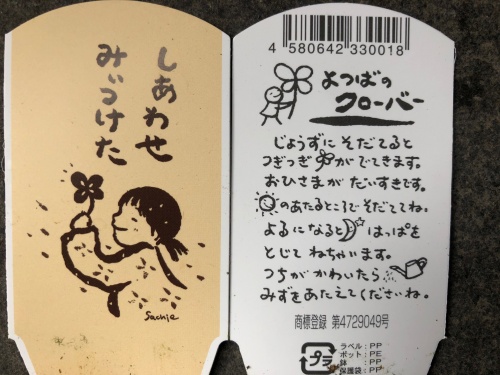 しあわせ
みぃつけた
Sachie
4 580642 330018
よつばの
クローバー
じょうずに そだてると
つぎつぎ がでてきます。
おひさまが だいすきです。
のあたるところで そだててね。
よるになると はっぱを
とじて ねちゃいます。
つちが かわいたら
みずをあたえてくださいね。
商標登録 第4729049号
プラ
ラベル:PP
ポット:PE
鉢:PP
保護袋:PP